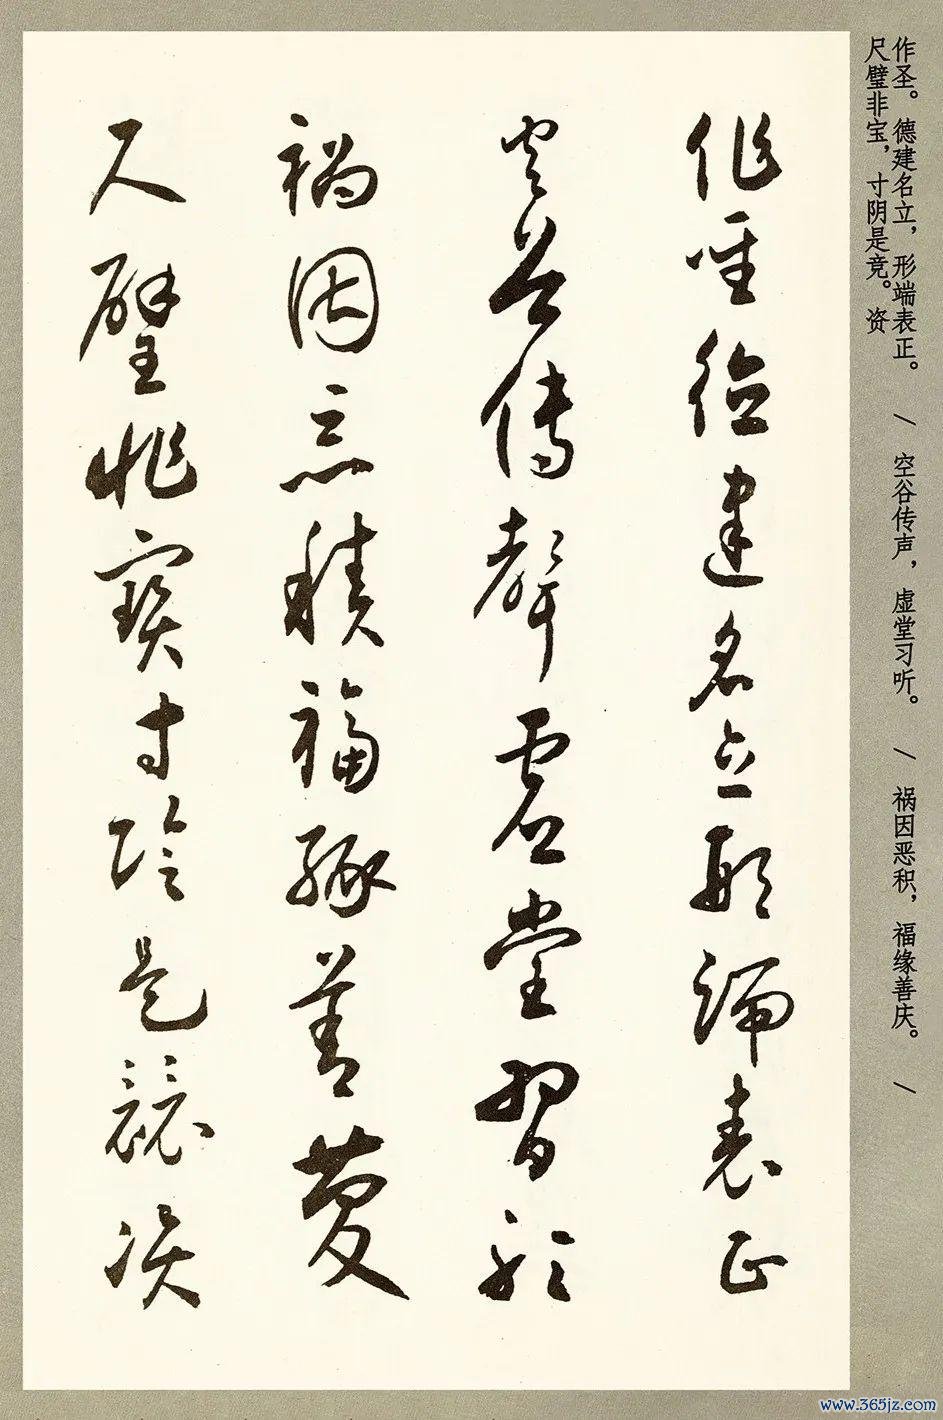 作圣。德建名立，形端表正。 \ 空谷传声，虚堂习听。 \ 祸因恶积，福缘善庆。 \
尺璧非宝，寸阴是竞。资
作聖德建名立形端表正
空谷傳聲虛堂習聽
禍因惡積福緣善慶
尺璧非寶寸陰是競資
www.365jz.com